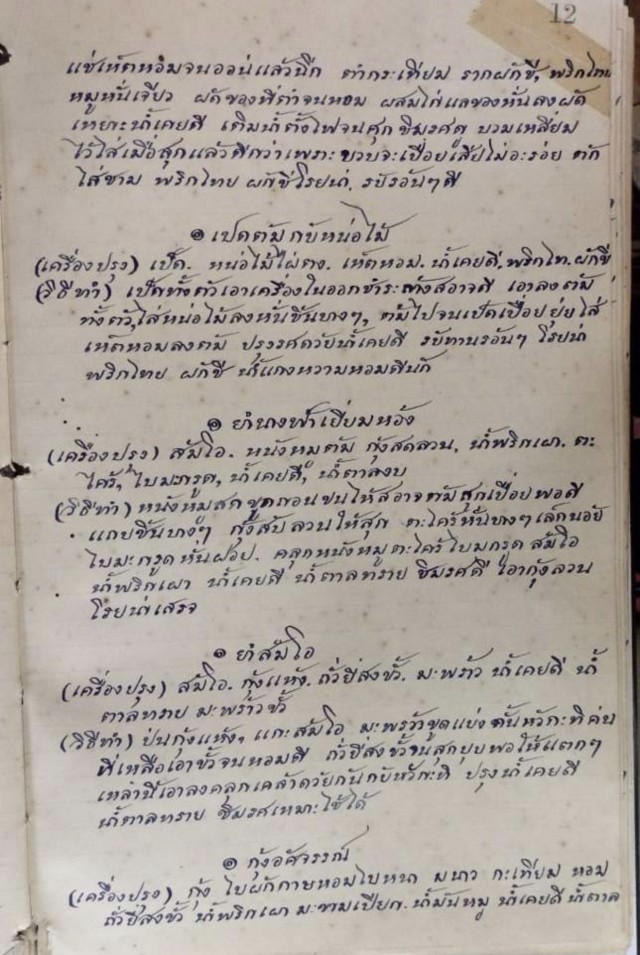 12
แช่เห็ดหอมจนอ่อนแล้วฉีก ตำกระเทียม รากผักชี, พริกไทย
หมูหั่นเจียว ผัดของที่ตำจนหอม ผสมไก่แลของหั่นลงผัด
เหยาะน้ำเคยดี เติมน้ำตั้งไฟจนศุก ชิมรศดู บวบเหลี่ยม
ไว้ใส่เมื่อสุกแล้วดีกว่าเพราะบวบจะเปื่อยเสียไม่อะร่อย ตัก
ใส่ชาม พริกไทย ผักชีโรยน่า, รับร้อนๆดี
๏ เปดต้มกับหน่อไม้
(เครื่องปรุง) เป็ด. หน่อไม้ไผ่ตง. เห็ดหอม. น้ำเคยดี, พริกไท. ผักชี
(วิธีทำ) เป็ดทั้งตัวเอาเครื่องในออกชำระล้างสอาจดี เอาลงต้ม
ทั้งตัว, ใส่หน่อไม้ลงหั่นชิ้นบางๆ, ต้มไปจนเป็ดเปื่อยยุ่ยใส่
เห็ดหอมลงต้ม ปรุงรศด้วยน้ำเคยดี รับทานร้อนๆ โรยน่า
พริกไทย ผักชี น้ำแกงหวานหอมดีนัก
๏ ยำนางฟ้าเยี่ยมหวัง
(เครื่องปรุง) ส้มโอ. หนังหมูต้ม กุ้งสดลวน, น้ำพริกเผา. ตะ
ไคร้, ใบมะกรูด, น้ำเคยดี, น้ำตาลงบ
(วิธีทำ) หนังหมูสดขูดถอนขนให้สอาจต้มสุกเปื่อยพอดี
แถยชิ้นบางๆ กุ้งสับลวนให้สุก ตะไคร้หั่นบางๆเล็กน้อย
ใบมะกรูดหั่นฝอย. คลุกหนังหมูตะไคร้ใบมกรูด ส้มโอ
น้ำพริกเผา น้ำเคยดี น้ำตาลทราย ชิมรศดี เอากุ้งลวน
โรยน่าเสรจ
๏ ยำส้มโอ
(เครื่องปรุง) ส้มโอ. กุ้งแห้ง. ถั่วยี่สงขั้ว. มะพร้าว น้ำเคยดี น้ำ
ตาลทราย มะพร้าวขั้ว
(วิธีทำ) ป่นกุ้งแห้ง, แกะส้มโอ มะพร้าวขูดแบ่งคั้นหัวกะทิค่น
ที่เหลือเอาขั้วจนหอมดี ถั่วยี่สงขั้วจนสุกบุบพอให้แตกๆ
เหล่านี้เอาลงคลุกเคล้าด้วยกันกับหัวกะทิ ปรุงน้ำเคยดี
น้ำตาลทราย ชิมรศเหมาะใช้ได้
๏ กุ้งอัศจรรณ์
(เครื่องปรุง) กุ้ง ใบผักกาดหอมใบหนา มนาว กะเทียม หอม
ถั่วยี่สงขั้ว น้ำพริกเผา มะขามเปียก. น้ำมันหมู น้ำเคยดี น้ำตาล